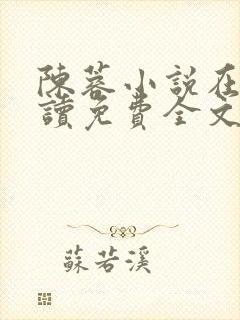 陳蓉小說在
讀免費全文
蘇若溪